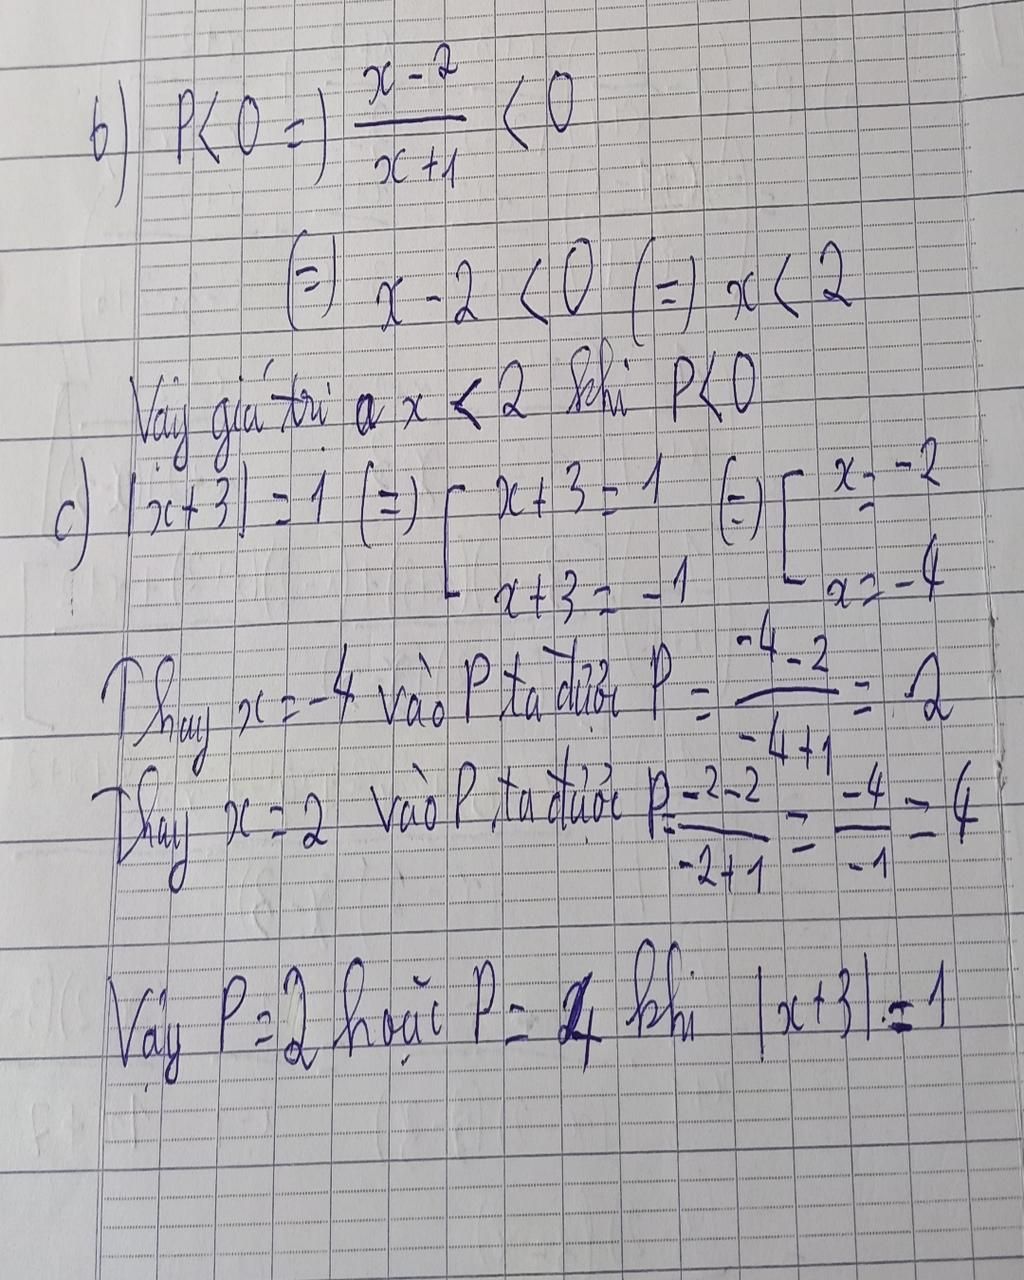 b) P < 0 => x - 2 / x + 1 < 0
(=) x - 2 < 0 (=) x < 2
Vậy giá trị x < 2 khi P < 0
c) |x + 3| = 1 (=) [ x + 3 = 1 (=) [ x = -2
x + 3 = -1 x = -4
Thay x = -4 vào P ta được P = -4 - 2 / -4 + 1 = 2
Thay x = 2 vào P ta được P = -2 - 2 / -2 + 1 = -4 / -1 = 4
Vậy P = 2 hoặc P = 4 khi |x + 3| = 1